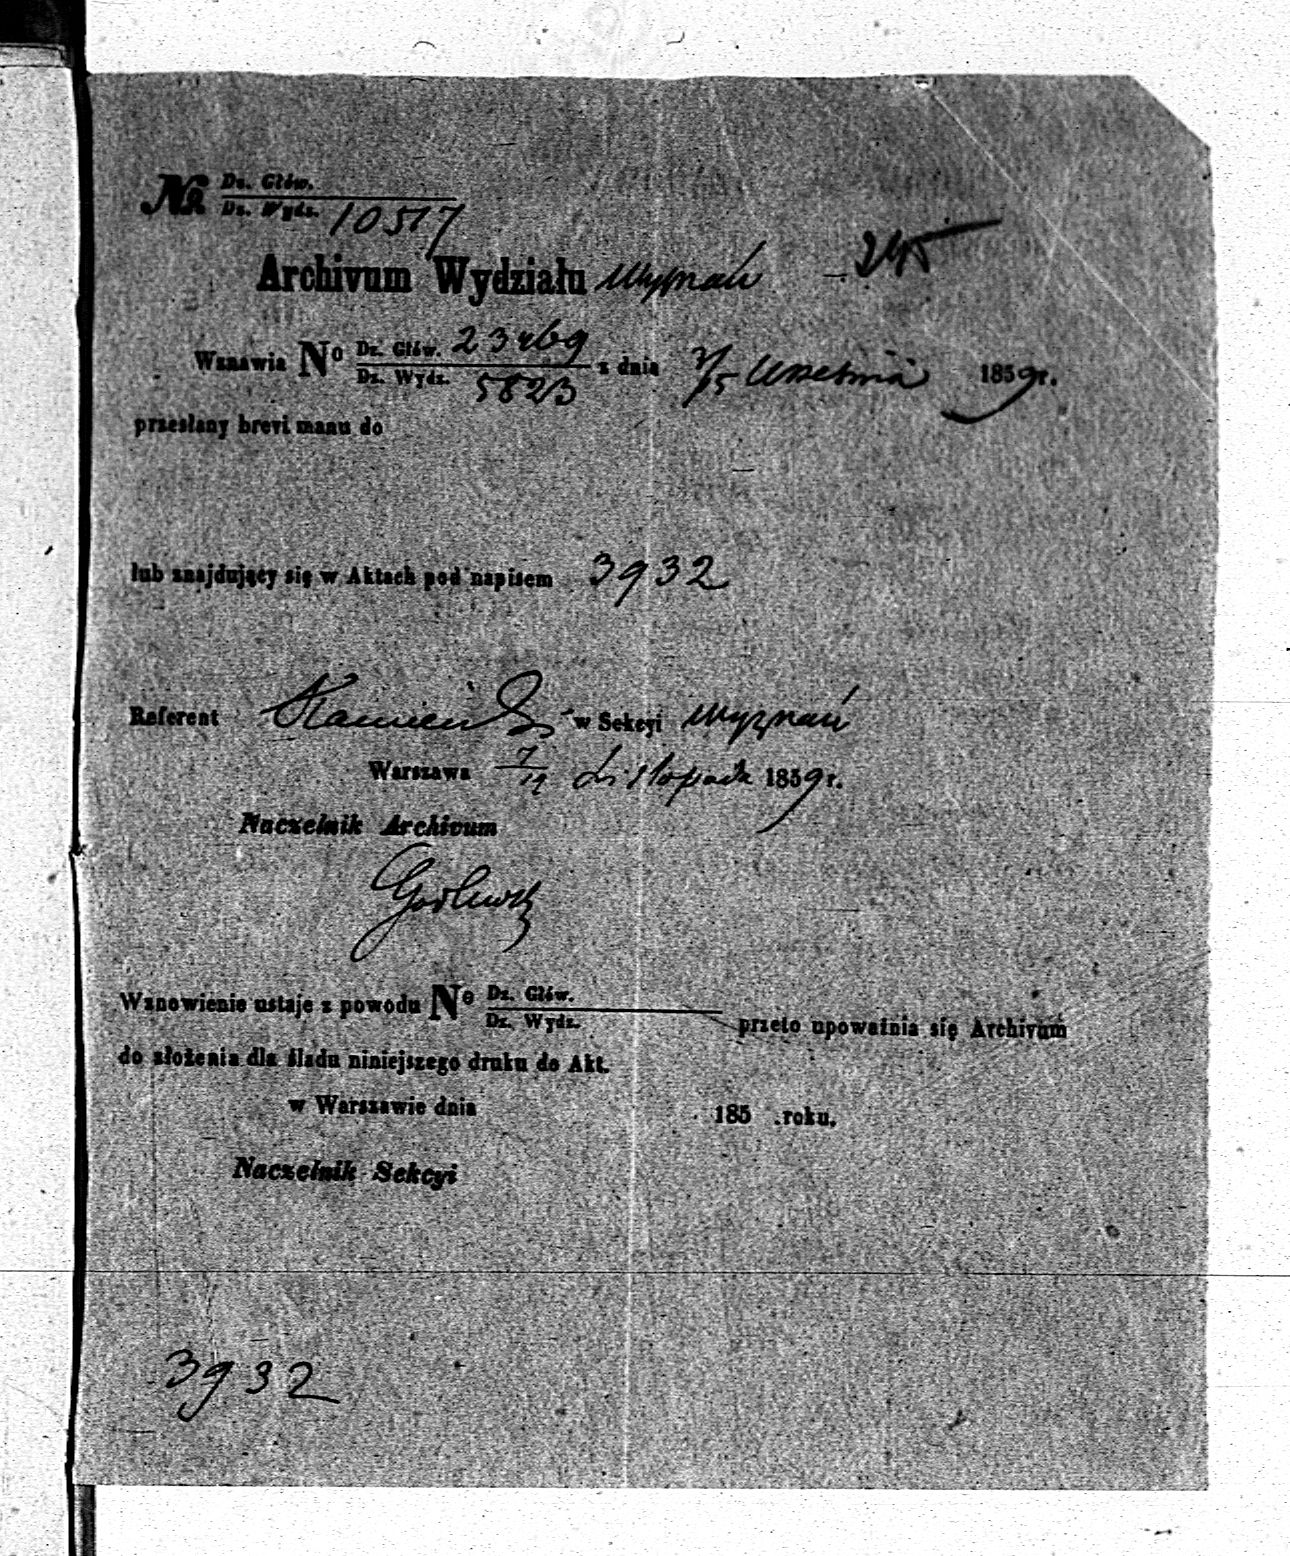 № Dz. Głów.
Dz. Wydz. 10517
Archivum Wydziału Wyznań 245
Wznawia No Dz. Głów. 23469 z dnia 3/15 Września 1859 r.
Dz. Wydz. 5823
przesłany brevi manu do
lub znajdujący się w Aktach pod napisem 3932
Referent Kamieński w Sekcyi Wyznań
Warszawa 7/19 Listopada 1859 r.
Naczelnik Archivum
Godlewski
Wznowienie ustaje z powodu No Dz. Głów.
Dz. Wydz. przeto upoważnia się Archivum
do złożenia dla śladu niniejszego druku do Akt.
w Warszawie dnia 185 roku.
Naczelnik Sekcyi
3932